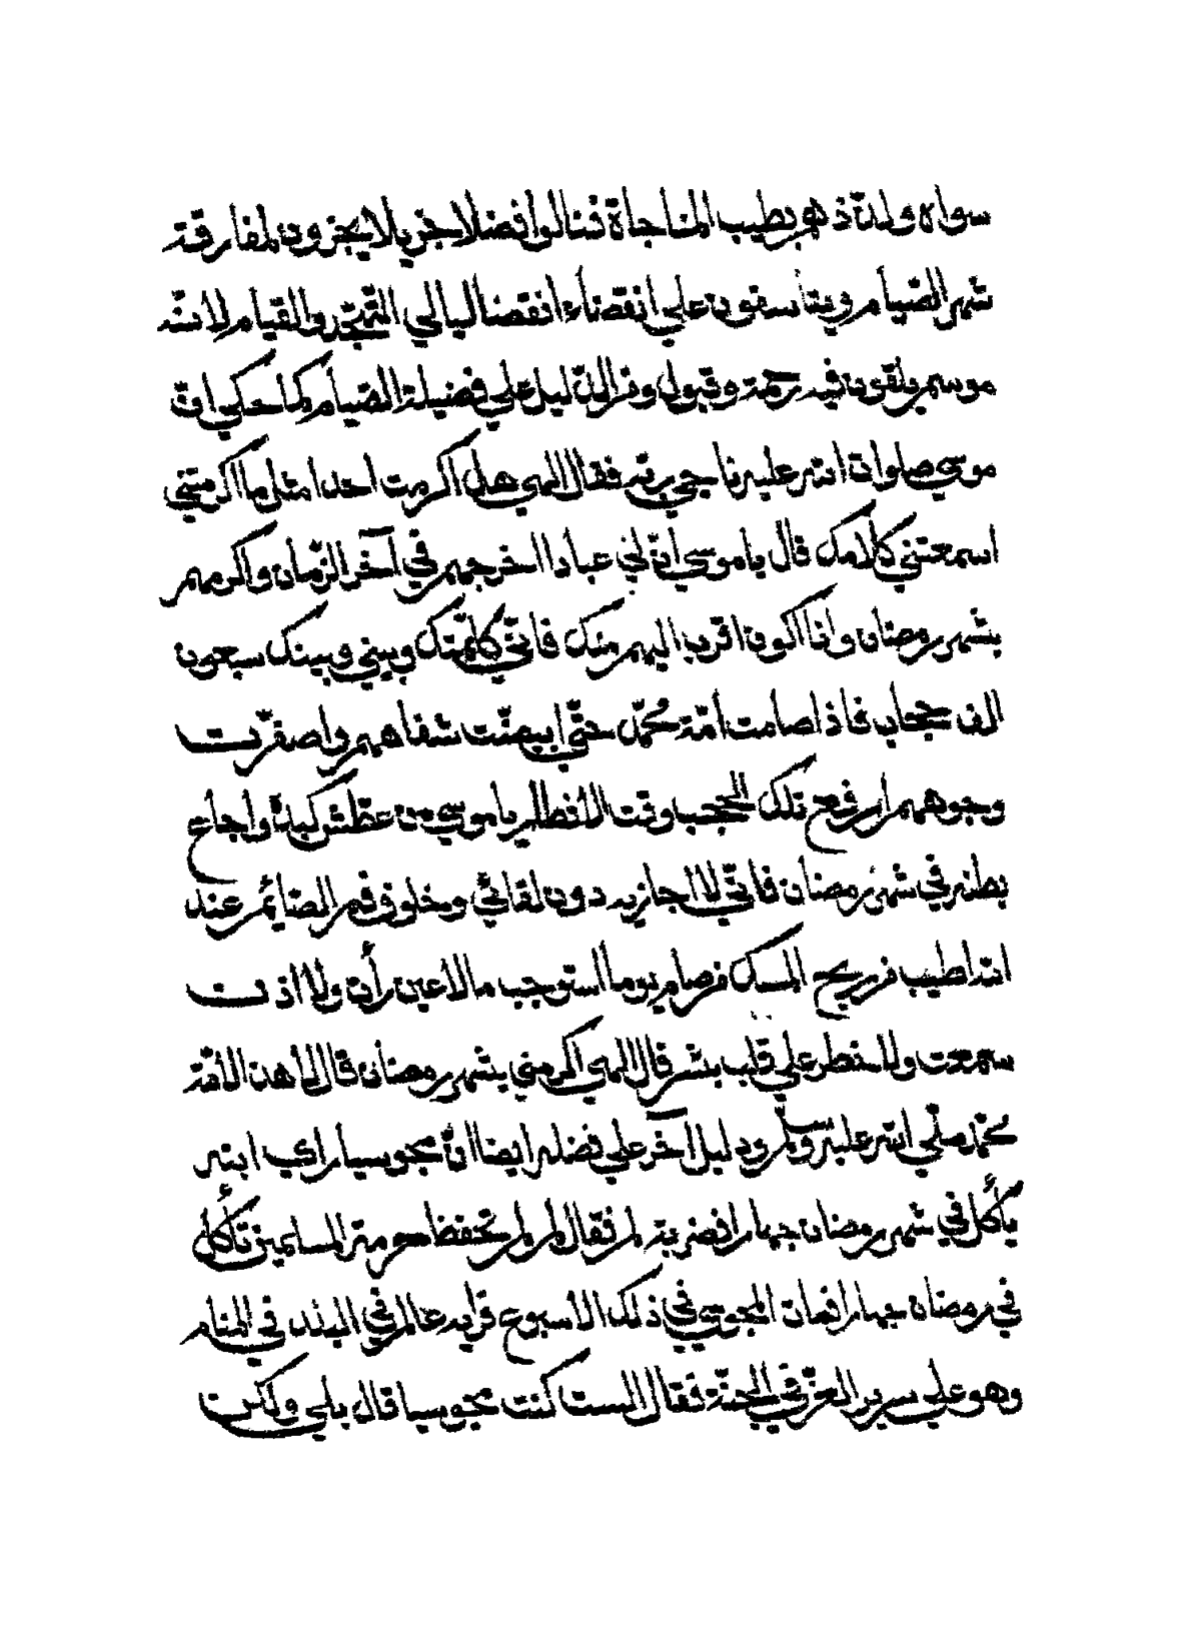 سواه ولذذهم بطيب المناجاة فنالوا فضلا جزيلا يحزنون لمفارقة
شهر الصيام ويتأسفون علي انقضاء انقضا ليالي التهجد والقيام لأنه
موسم يلقون فيه رحمة وقبول ومن الدليل علي فضيلة الصيام كما حكي انّ
موسي صلوات الله عليه ناجي ربه فقال الهي هل اكرمت احدا مثل ما اكرمتني
اسمعتني كلامك قال يا موسي انّ لي عبادا اخرجهم في آخر الزمان واكرمهم
بشهر رمضان وانا اكون اقرب اليهم منك فانّي كلمتك وبيني وبينك سبعون
الف حجاب فاذا صامت امّة محمّد حتّي ابيضّت شفاههم واصفرّت
وجوههم ارفع تلك الحجب وقت الأفطار يا موسي من عطش كبده وأجاع
بطنه في شهر رمضان فانّي لا اجازيه دون لقائي وخلوف فم الصّائم عند
الله اطيب من ريح المسك من صام يوما استوجب ما لا عين رأت ولا اذنت
سمعت ولا خطر علي قلب بشر قال الهي اكرمني بشهر رمضان قال لا هذه الأمّة
محمّد صلّي الله عليه وسلّم ودليل آخر علي فضله ايضا انّ مجوسيا راي ابنه
يأكل في شهر رمضان جهارا فضربه لم فقال لم لم تحفظ حرمة المسلمين تأكل
في رمضان جهارا فمات المجوسي في ذلك الأسبوع فرايه عالم في البلد في المنام
وهو علي سرير العزّ في الجنّة فقال الست كنت مجوسيا قال بلي ولكن